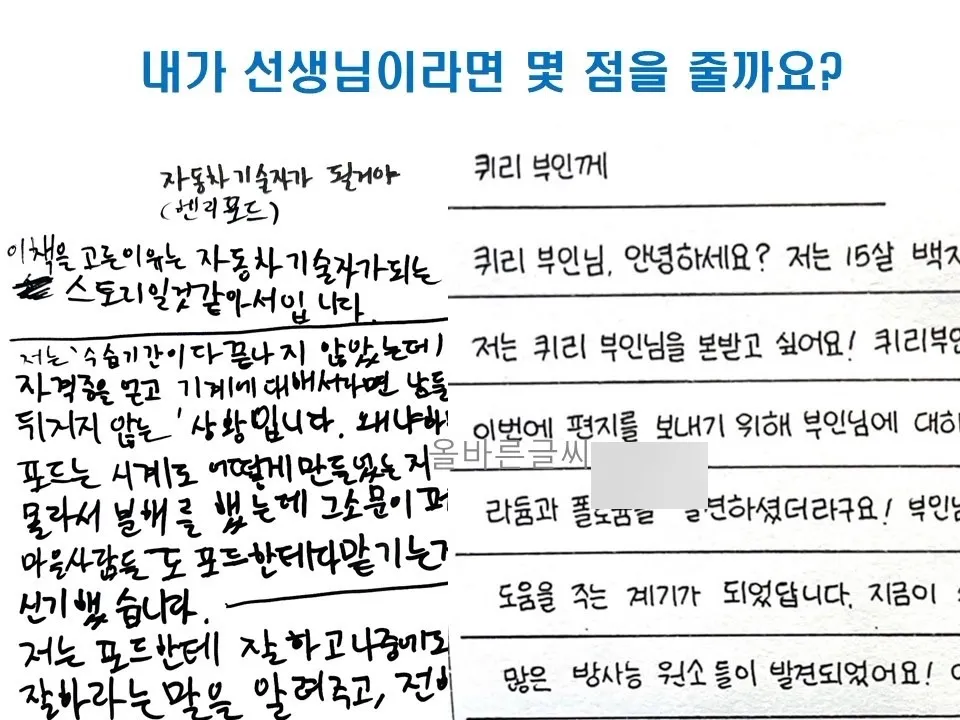 내가 선생님이라면 몇 점을 줄까요?
자동차기술자가 될거야
(헨리포드)
이책을 고른이유는 자동차기술자가되는
스토리일것같아서입니다.
저는 '수습기간이다끝나지 않았는데
자격증을 얻고 기계에대해서라면 남들
뒤지지 않는 '상황'입니다. 왜냐하
포드는 시계도 어떻게만들었는지
몰라서 분해를 했는데 그소문이 퍼
마을사람들도 포드한테다맡기는
신기했습니다.
저는 포드한테 잘하고나중에도
잘하라는말을 알려주고, 전
퀴리 부인께
퀴리 부인님, 안녕하세요? 저는 15살 백
저는 퀴리 부인님을 본받고 싶어요! 퀴리부인
이번에 편지를 보내기 위해 부인님에 대하
올바른글씨
라듐과 폴로늄을 발견하셨더라구요! 부인님
도움을 주는 계기가 되었답니다. 지금이
많은 방사능 원소들이 발견되었어요!